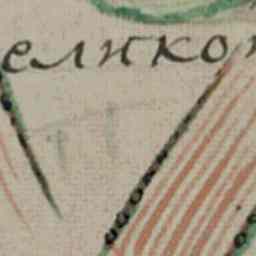 еликог